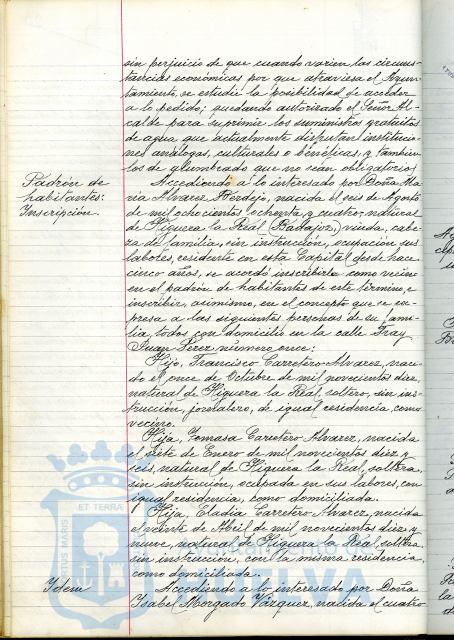 sin perjuicio de que cuando varien las circuns-
tancias económicas por que atraviesa el Ayun-
tamiento, se estudie la posibilidad de acceder
a lo pedido; quedando autorizado el Señor Al-
calde para suprimir los suministros gratuitos
de agua que actualmente disfrutan institucio-
nes análogas, culturales o benéficas, y tambien
los de alumbrado que no sean obligatorios.
Padrón de
habitantes:
Inscripcion.
Accediendo a lo interesado por Doña Ma-
ria Alvarez Berdejo, nacida el seis de Agosto
de mil ochocientos ochenta y cuatro, natural
de Higuera la Real (Badajoz), viuda, cabe-
za de familia, sin instrucción, ocupación sus
labores, residente en esta Capital desde hace
cinco años, se acordó inscribirla como vecino
en el padrón de habitantes de este término, e
inscribir, asimismo, en el concepto que se ex-
presa a las siguientes personas de su fami-
lia, todos con domicilio en la calle Fray
Juan Pérez número once:
Hijo, Francisco Carretero Alvarez, naci-
do el once de Octubre de mil novecientos diez,
natural de Higuera la Real, soltero, sin ins-
trucción, jornalero, de igual residencia, como
vecino.
Hija, Tomasa Carretero Alvarez, nacida
el siete de Enero de mil novecientos diez y
seis, natural de Higuera la Real, soltera,
sin instrucción, ocupada en sus labores, con
igual residencia, como domiciliada.
Hija, Eladia Carretero Alvarez, nacida
el veinte de Abril de mil novecientos diez y
nueve, natural de Higuera la Real, soltera,
sin instrucción, con la misma residencia,
como domiciliada.
Idem
Accediendo a lo interesado por Doña
Isabel Morgado Vázquez, nacida el cuatro
PORTUS MARIS
ET TERRA
Ayuntamiento de